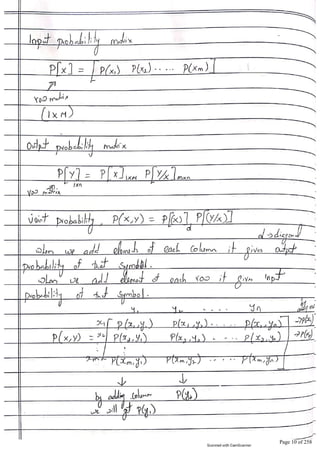 Input probability matrix
P[x] = [ P(x₁) P(x₂) ..... P(xm) ]
row matrix
(1×M)
Output probability matrix
P[Y] = P[x]1×M P[Y/x]m×n
1×n
row matrix
joint Probability, P(x,y) = P[(x)]d P[(Y/x)]
d→diagonal
when we add elements of each column it gives output
probability of that symbol.
when we add element of each row it gives input
probability of that symbol.
y₁ y₂ ..... yn
x₁ [ P(x₁,y₁) P(x₁,y₂) ..... P(x₁,yn) ] →P(x₁)
P(x,y) = x₂ P(x₂,y₁) P(x₂,y₂) - . . . P(x₂,yn) →P(x₂)
xm P(xm,y₁) P(xm,y₂) ..... P(xm,yn)
↓ ↓
by adding column P(y₂)
we will get P(y₁)
Scanned with CamScanner
Page 10 of 258